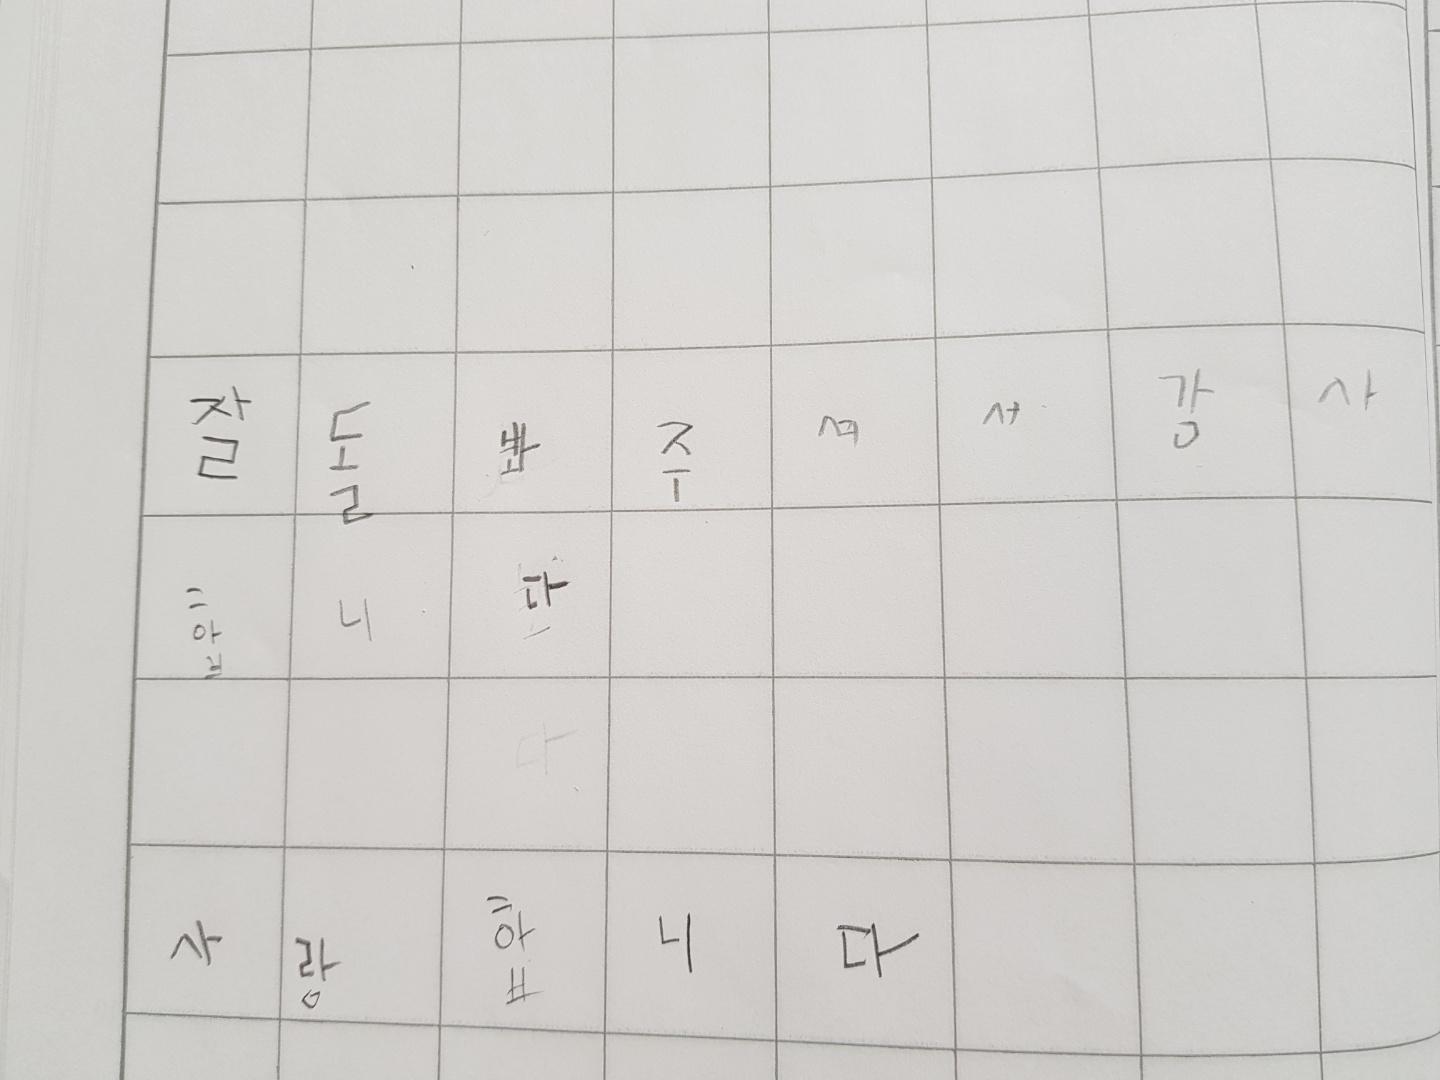 잘돌봐주셔서감사
합니다
사랑합니다